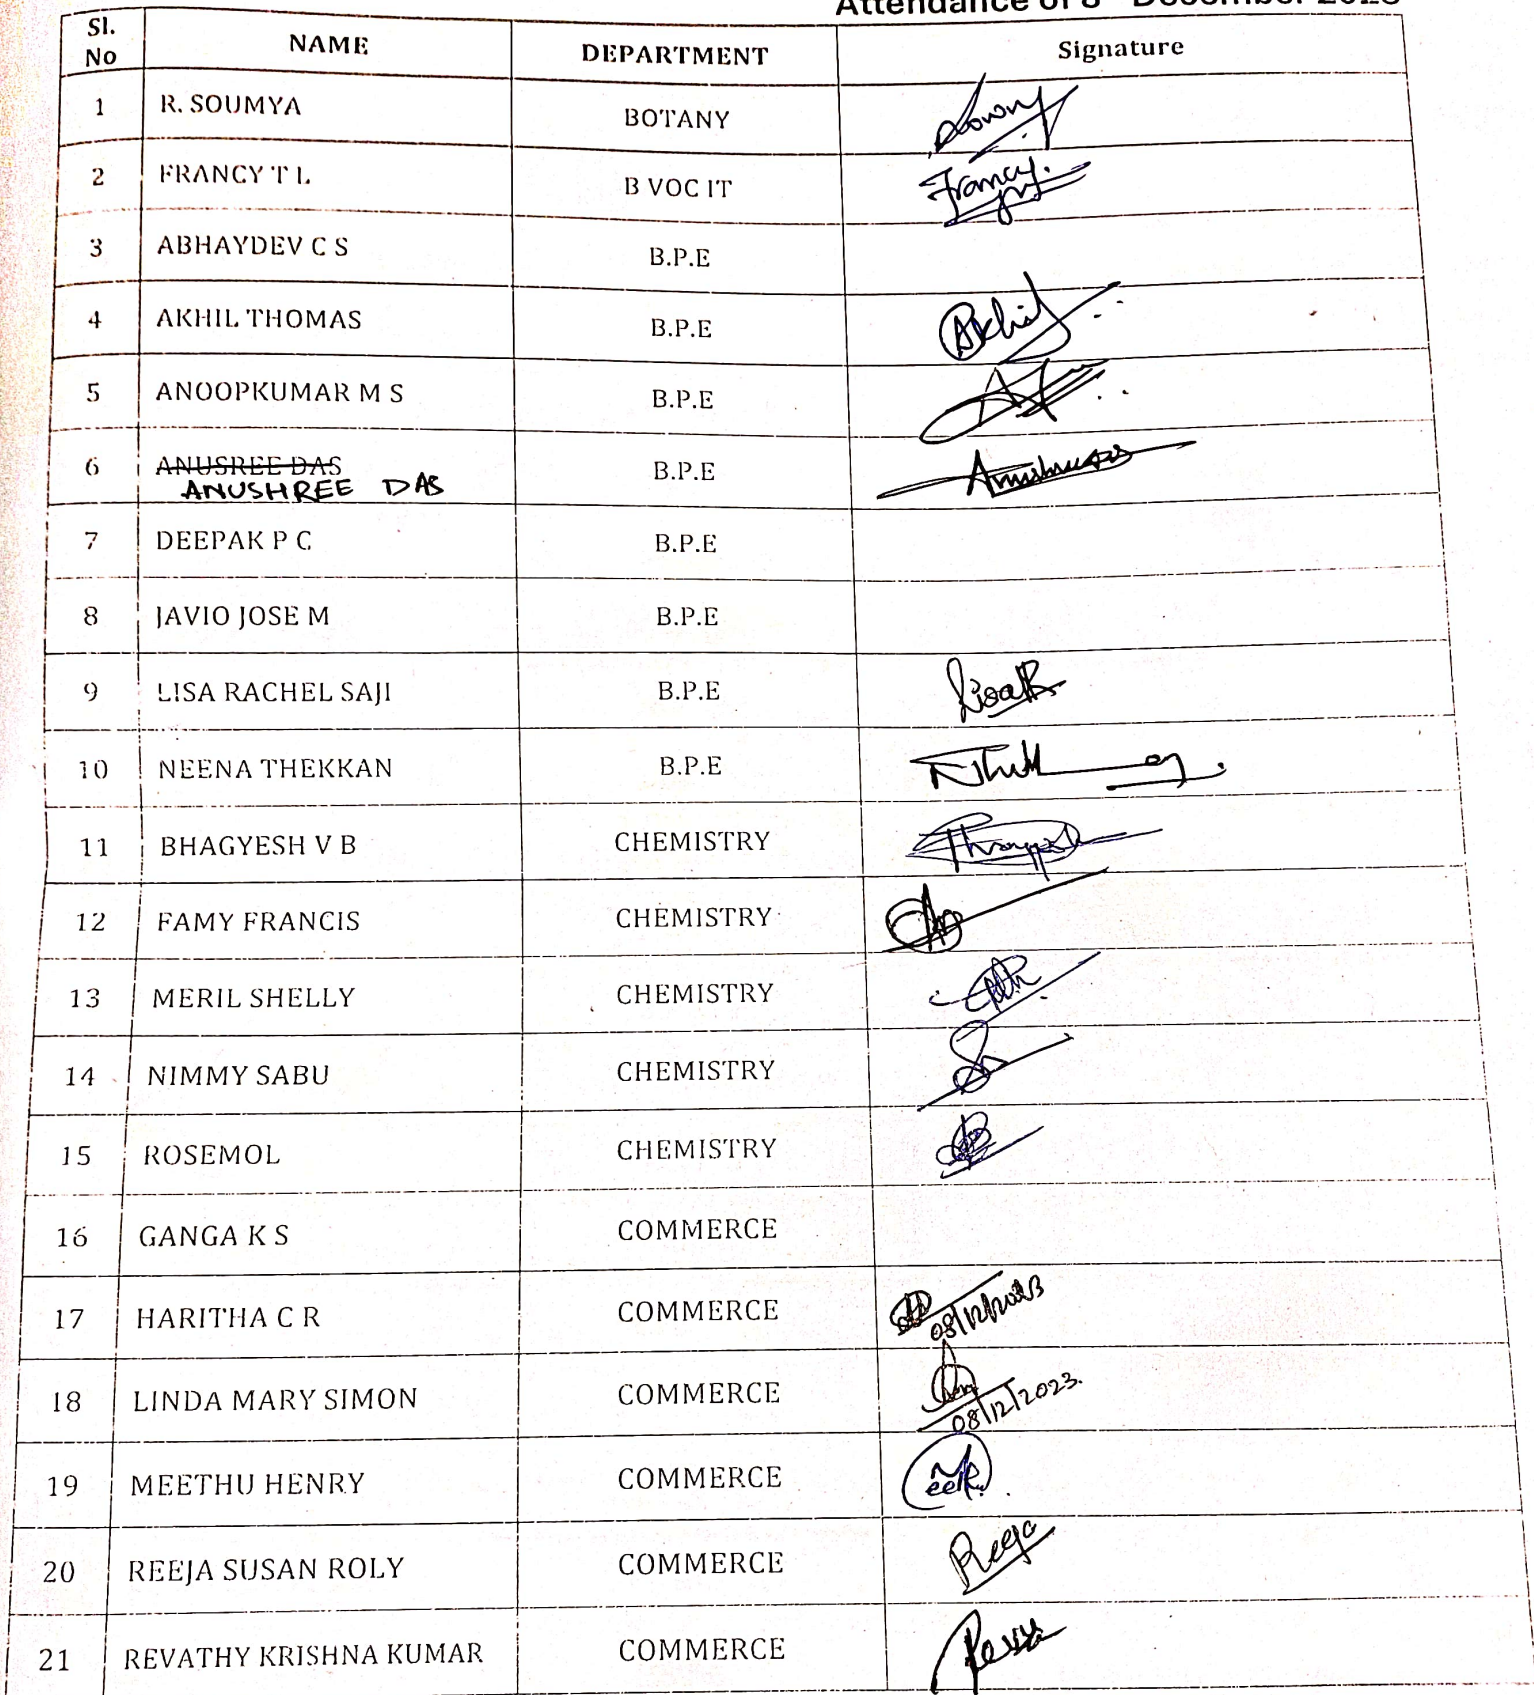 Attendance of 8 December 2023
Sl. No NAME DEPARTMENT Signature
1 R. SOUMYA BOTANY
2 FRANCY T L B VOC IT Francy
3 ABHAYDEV C S B.P.E
4 AKHIL THOMAS B.P.E Akhil
5 ANOOPKUMAR M S B.P.E
6 ANUSREE DAS B.P.E
ANUSHREE DAS
7 DEEPAK P C B.P.E
8 JAVIO JOSE M B.P.E
9 LISA RACHEL SAJI B.P.E
10 NEENA THEKKAN B.P.E
11 BHAGYESH V B CHEMISTRY
12 FAMY FRANCIS CHEMISTRY
13 MERIL SHELLY CHEMISTRY
14 NIMMY SABU CHEMISTRY
15 ROSEMOL CHEMISTRY
16 GANGA K S COMMERCE
17 HARITHA C R COMMERCE 08/12/2023
18 LINDA MARY SIMON COMMERCE 08/12/2023.
19 MEETHU HENRY COMMERCE
20 REEJA SUSAN ROLY COMMERCE Reeja
21 REVATHY KRISHNA KUMAR COMMERCE